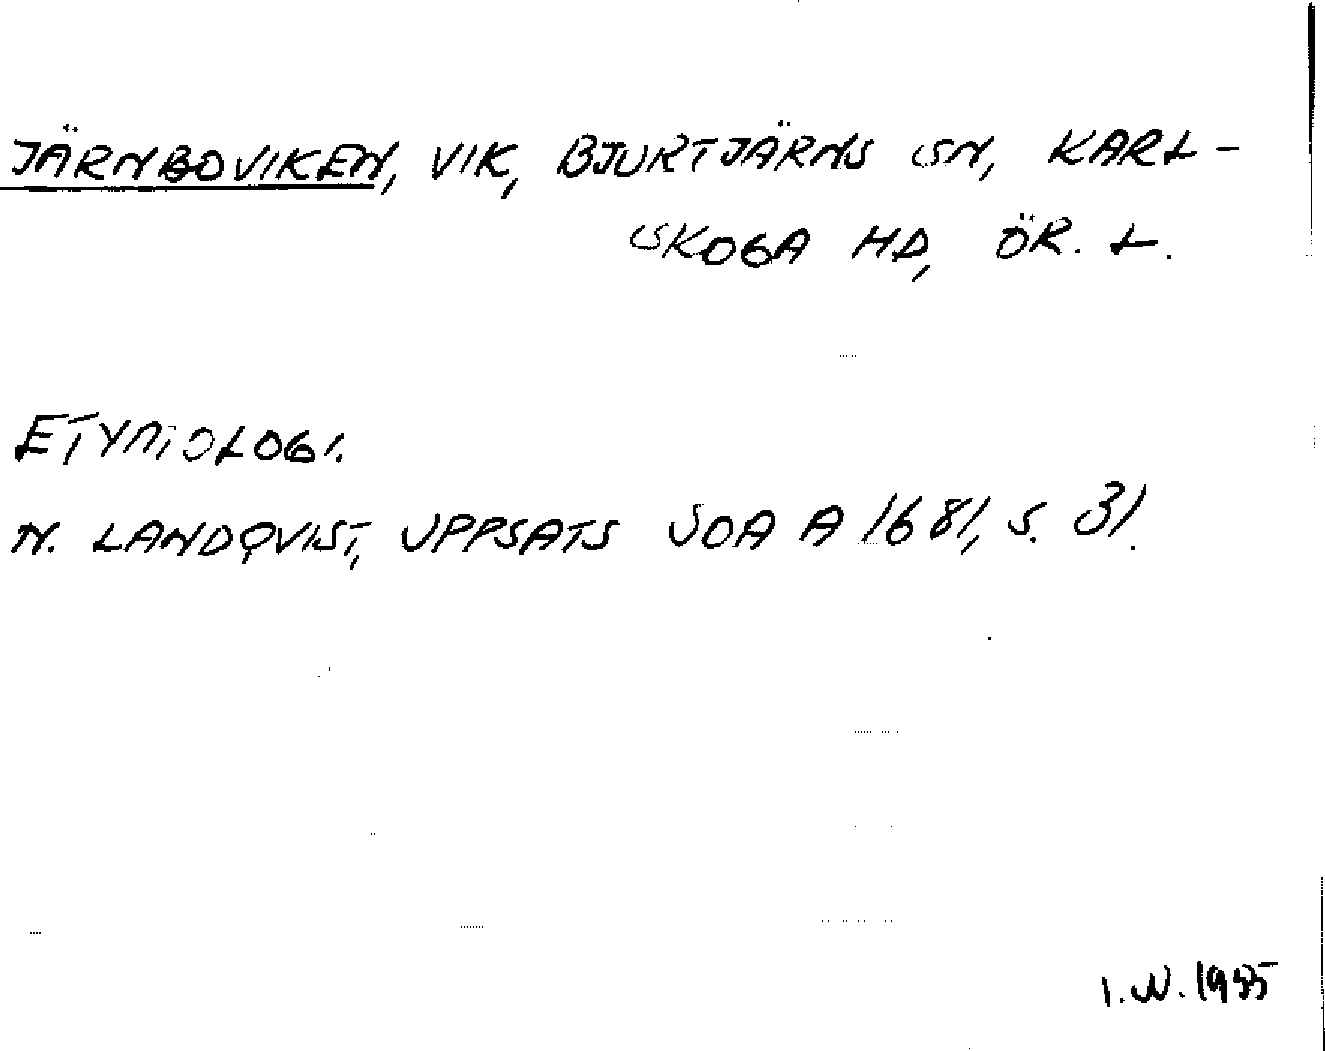 JÄRNBOVIKEN, VIK, BJURTJÄRNS SN, KARL-
SKOGA HD, ÖR. L.
ETYMOLOGI.
N. LANDQVIST, UPPSATS SOA A 1681, S. 31.
I.W. 1955